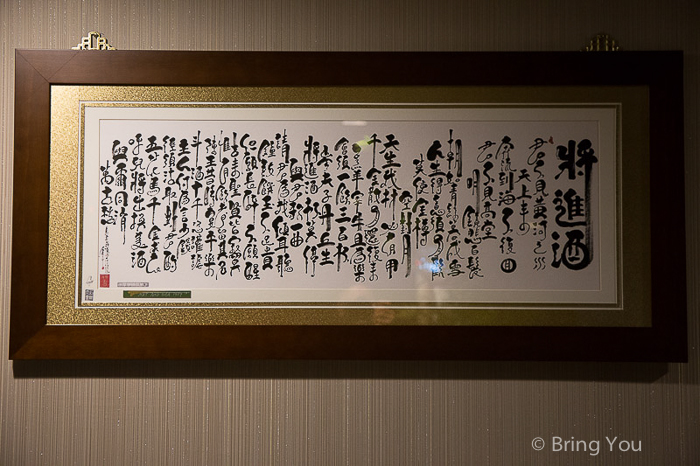 將進酒
君不見黃河之水
天上來
奔流到海不復回
君不見高堂
明鏡悲白髮
朝如青絲暮成雪
人生得意須盡歡
莫使金樽
空對月
天生我材必有用
千金散盡還復來
烹羊宰牛且為樂
會須一飲三百杯
岑夫子丹丘生
將進酒杯莫停
與君歌一曲
請君為我傾耳聽
鐘鼓饌玉不足貴
但願長醉不願醒
古來聖賢皆寂寞
惟有飲者留其名
陳王昔時宴平樂
斗酒十千恣讙謔
主人何為言少錢
徑須沽取對君酌
五花馬千金裘
呼兒將出換美酒
與爾同消
萬古愁
© Bring You